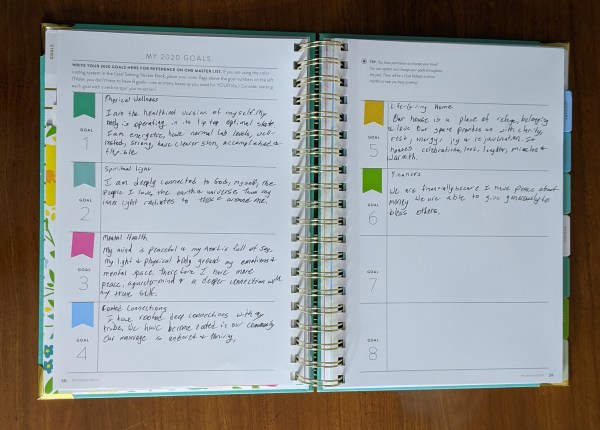 MY 2020 GOALS
WRITE YOUR 2020 GOALS HERE FOR REFERENCE ON ONE MASTER LIST.
Physical Wellness
I am the healthiest version of myself. My
body is operating in its tip top optimal state.
I am energetic, have normal lab levels, well-
rested, strong, have clearer skin, accomplished &
flexible.
GOAL
1
Spiritual Light
I am deeply connected to God, myself, the
people I love the earth & universe. Thus my
inner light radiates to those around me.
GOAL
2
Mental Health
My mind is peaceful & my heart is full of joy.
My light & physical body ground my emotions &
mental space. Therefore I have more
peace, a quieter mind & a deeper connection with
my true self.
GOAL
3
Rooted Connections
I have rooted deep connections with my
tribe. We have become rooted in our community
Our marriage is and thriving.
GOAL
4
TIP:
Life-Giving Home
Our house is a place of refuge, belonging
& love. Our space provides us with clarity,
rest, energy, joy & rejuvenation. It
houses celebrations, love, laughter, miracles &
warmth.
GOAL
5
Finances
We are financially secure. I have peace about
money. We are able to give generously to
bless others.
GOAL
6
GOAL
7
GOAL
8